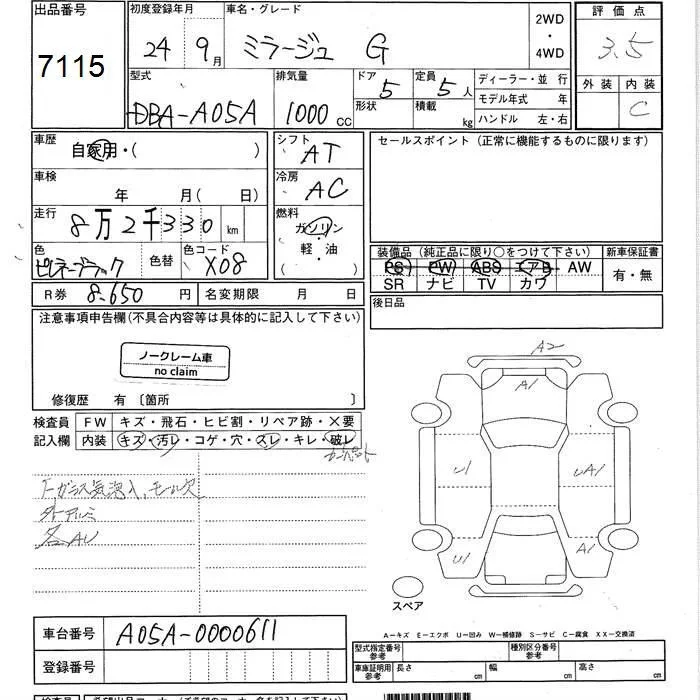 出品番号
7115
初度登録年月
24 9月
車名・グレード
ミラージュ G
2WD
・
4WD
評価点
3.5
外装 内装
C
型式
DBA-A05A
排気量
1000 CC
ドア 5
形状
定員 5人
積載 kg
ディーラー・並行
モデル年式 年
ハンドル 左・右
車歴
自家用・( )
車検
年 月(日)
走行
8万2千330 km
色
色替
色コード
X08
シフト
AT
冷房
AC
燃料
ガソリン
・
軽・油
( )
セールスポイント (正常に機能するものに限ります)
装備品 (純正品に限り○をつけて下さい)
PS PW ABS エアB AW
SR ナビ TV カワ
新車保証書
有・無
後日品
R券 8,650 円
名変期限 月 日
注意事項申告欄(不具合内容等は具体的に記入して下さい)
ノークレーム車
no claim
修復歴 有〔箇所 〕
検査員
記入欄
FW キズ・飛石・ヒビ割・リペア跡・×要
内装 キズ・汚レ・コゲ・穴・スレ・キレ・破レ
外アルミ
各AU
A2
A1
U1
UA1
U1
A1
スペア
A―キズ E―エクボ U―凹み W―補修跡 S―サビ C―腐食 XX―交換済
車台番号
A05A-0000611
登録番号
型式指定番号
参考
種別区分番号
参考
車庫証明用
参考
長さ cm
幅 cm
高さ cm